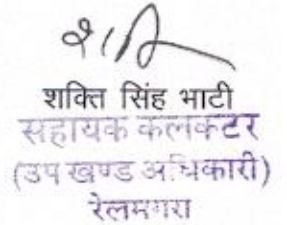 शक्ति सिंह भाटी
सहायक कलक्टर
(उप खण्ड अधिकारी)
रेलमगरा